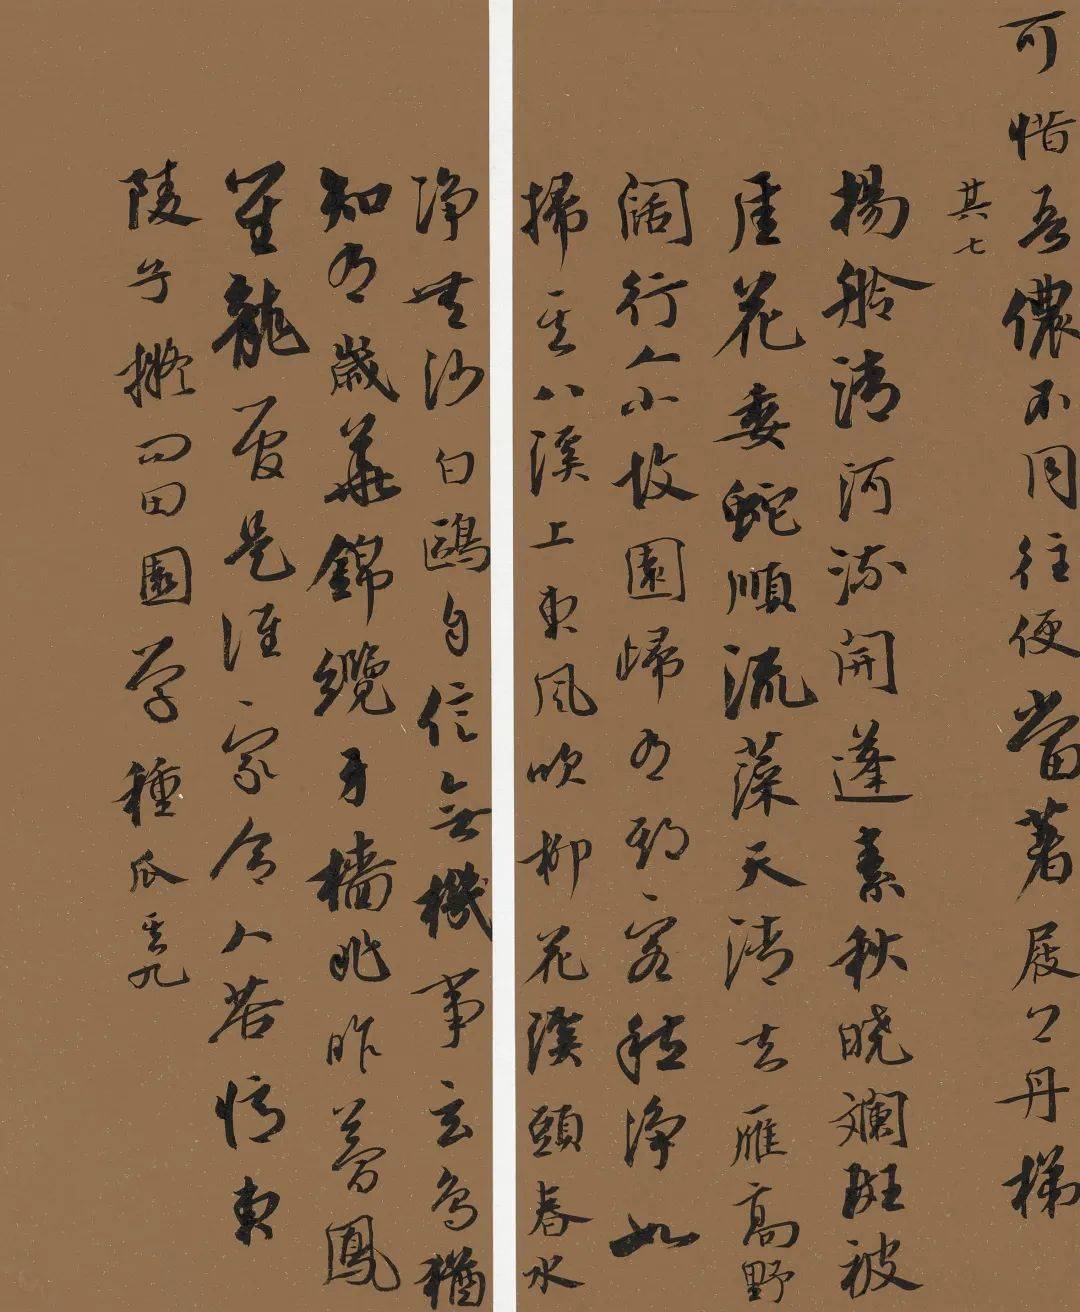 可惜吾儂不同往便當著屐上丹梯
其七
揚舲清河流開蓬素秋曉斕斑被
崖花委蛇順流藻天清去雁高野
闊行人小故園歸有期客種淨如
掃其八溪上東風吹柳花溪頭春水
淨無沙白鷗自信無機事玄鳥猶
知有歲華錦纜牙檣非昨夢鳳
笙龍管是誰家令人苦憶東
陵子擬向田園學種瓜其九